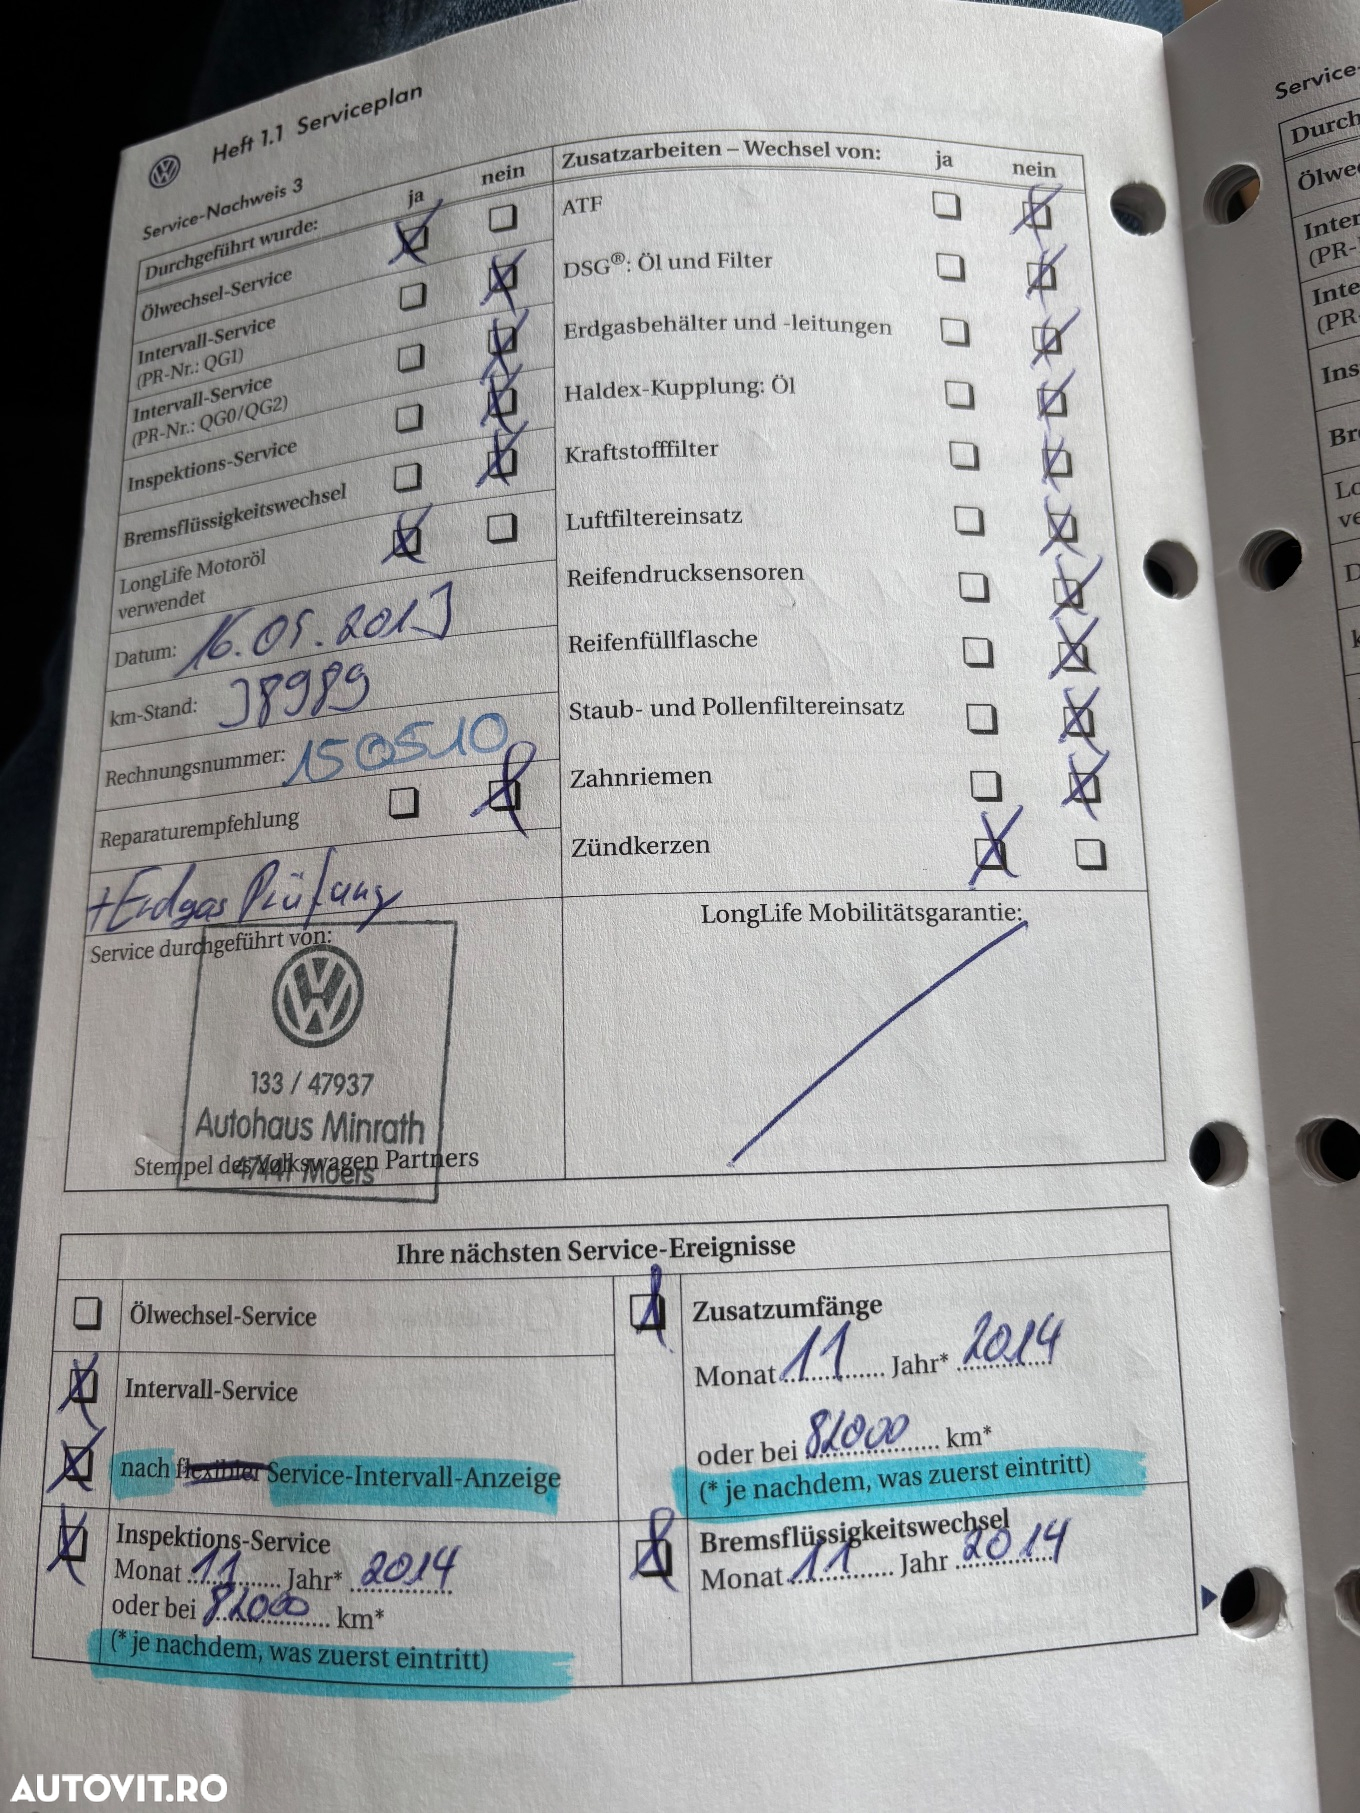 Heft 1.1 Serviceplan
Service-Nachweis 3
Durchgeführt wurde: ja nein
Ölwechsel-Service
Intervall-Service
(PR-Nr.: QG1)
Intervall-Service
(PR-Nr.: QG0/QG2)
Inspektions-Service
Bremsflüssigkeitswechsel
LongLife Motoröl
verwendet
Datum: 16.05.2013
km-Stand: 38989
Rechnungsnummer: 150510
Reparaturempfehlung
+Erdgas Prüfung
Service durchgeführt von:
133 / 47937
Autohaus Minrath
47441 Moers
Stempel des Volkswagen Partners
Zusatzarbeiten – Wechsel von: ja nein
ATF
DSG®: Öl und Filter
Erdgasbehälter und -leitungen
Haldex-Kupplung: Öl
Kraftstofffilter
Luftfiltereinsatz
Reifendrucksensoren
Reifenfüllflasche
Staub- und Pollenfiltereinsatz
Zahnriemen
Zündkerzen
LongLife Mobilitätsgarantie:
Ihre nächsten Service-Ereignisse
Ölwechsel-Service
Intervall-Service
nach flexibler Service-Intervall-Anzeige
Inspektions-Service
Monat 11 Jahr* 2014
oder bei 82000 km*
(* je nachdem, was zuerst eintritt)
Zusatzumfänge
Monat 11 Jahr* 2014
oder bei 82000 km*
(* je nachdem, was zuerst eintritt)
Bremsflüssigkeitswechsel
Monat 11 Jahr 2014
Service-
Durch
Ölwe
Inter
(PR-
Inte
(PR-
Ins
Br
Lo
ve
D
AUTOVIT.RO